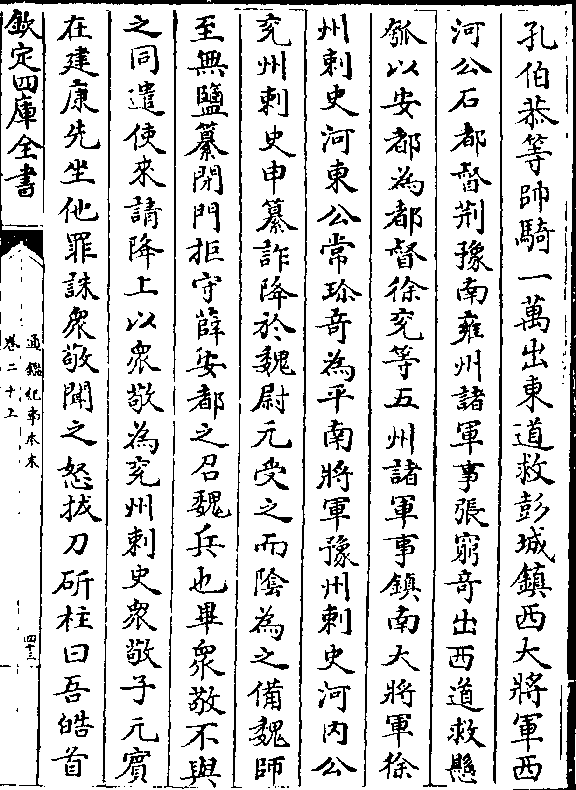 孔伯恭等帥騎一萬出東道救彭城鎮西大將軍西
河公石都督荆豫南雍州諸軍事張窮竒出西道救懸
瓠以安都為都督徐兖等五州諸軍事鎮南大將軍徐
州刺史河東公常珍竒為平南將軍豫州刺史河内公
兖州刺史申纂詐降於魏尉元受之而隂為之備魏師
至無鹽纂閉門拒守薛安都之召魏兵也畢衆敬不與
之同遣使來請降上以衆敬為兖州刺史衆敬子元賓
在建康先坐他罪誅衆敬聞之怒拔刀斫柱曰吾皓首
欽定四庫全書
通鑑紀事本末
卷二十上
四十三